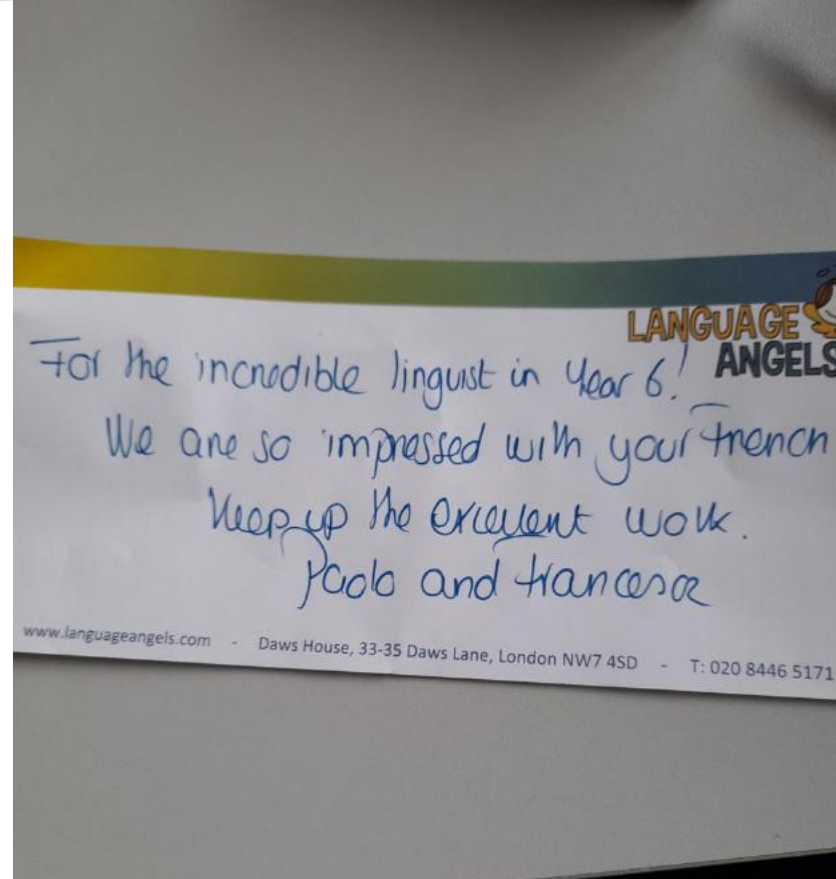 LANGUAGE
ANGELS
For the incredible linguist in Year 6!
We are so impressed with your French
Keep up the excellent work.
Paolo and Francesca
www.languageangels.com - Daws House, 33-35 Daws Lane, London NW7 4SD - T: 020 8446 5171